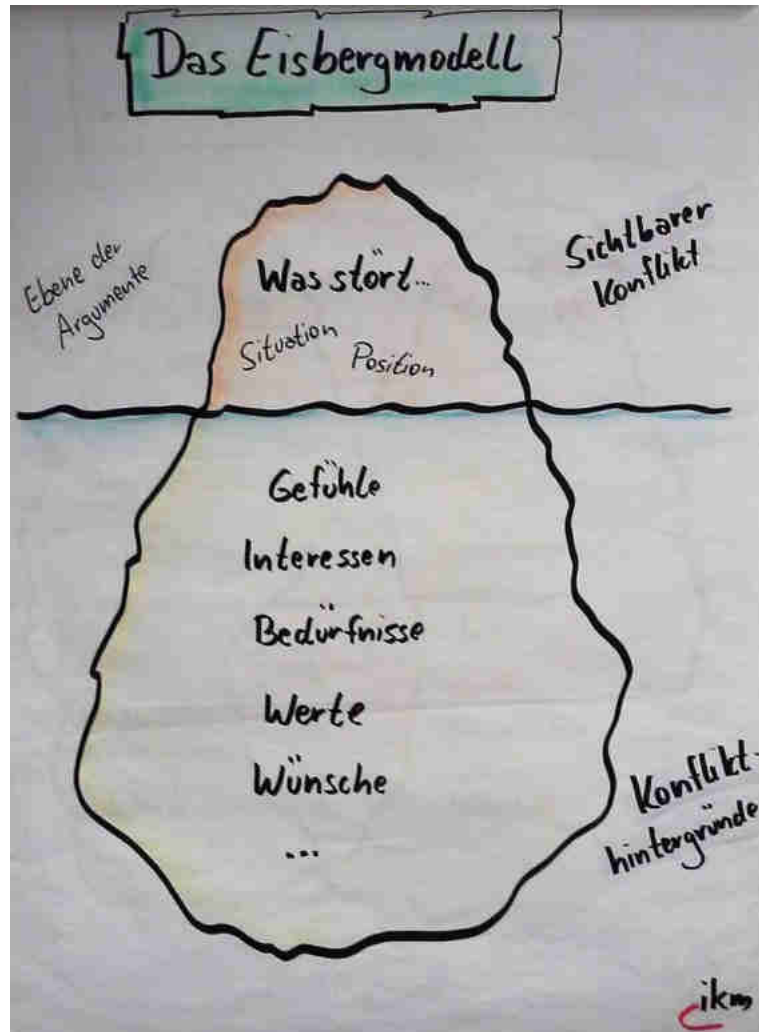 Das Eisbergmodell
Ebene der
Argumente
Was stört...
Situation
Position
Sichtbarer
Konflikt
Gefühle
Interessen
Bedürfnisse
Werte
Wünsche
...
Konflikt-
hintergründe
ikm